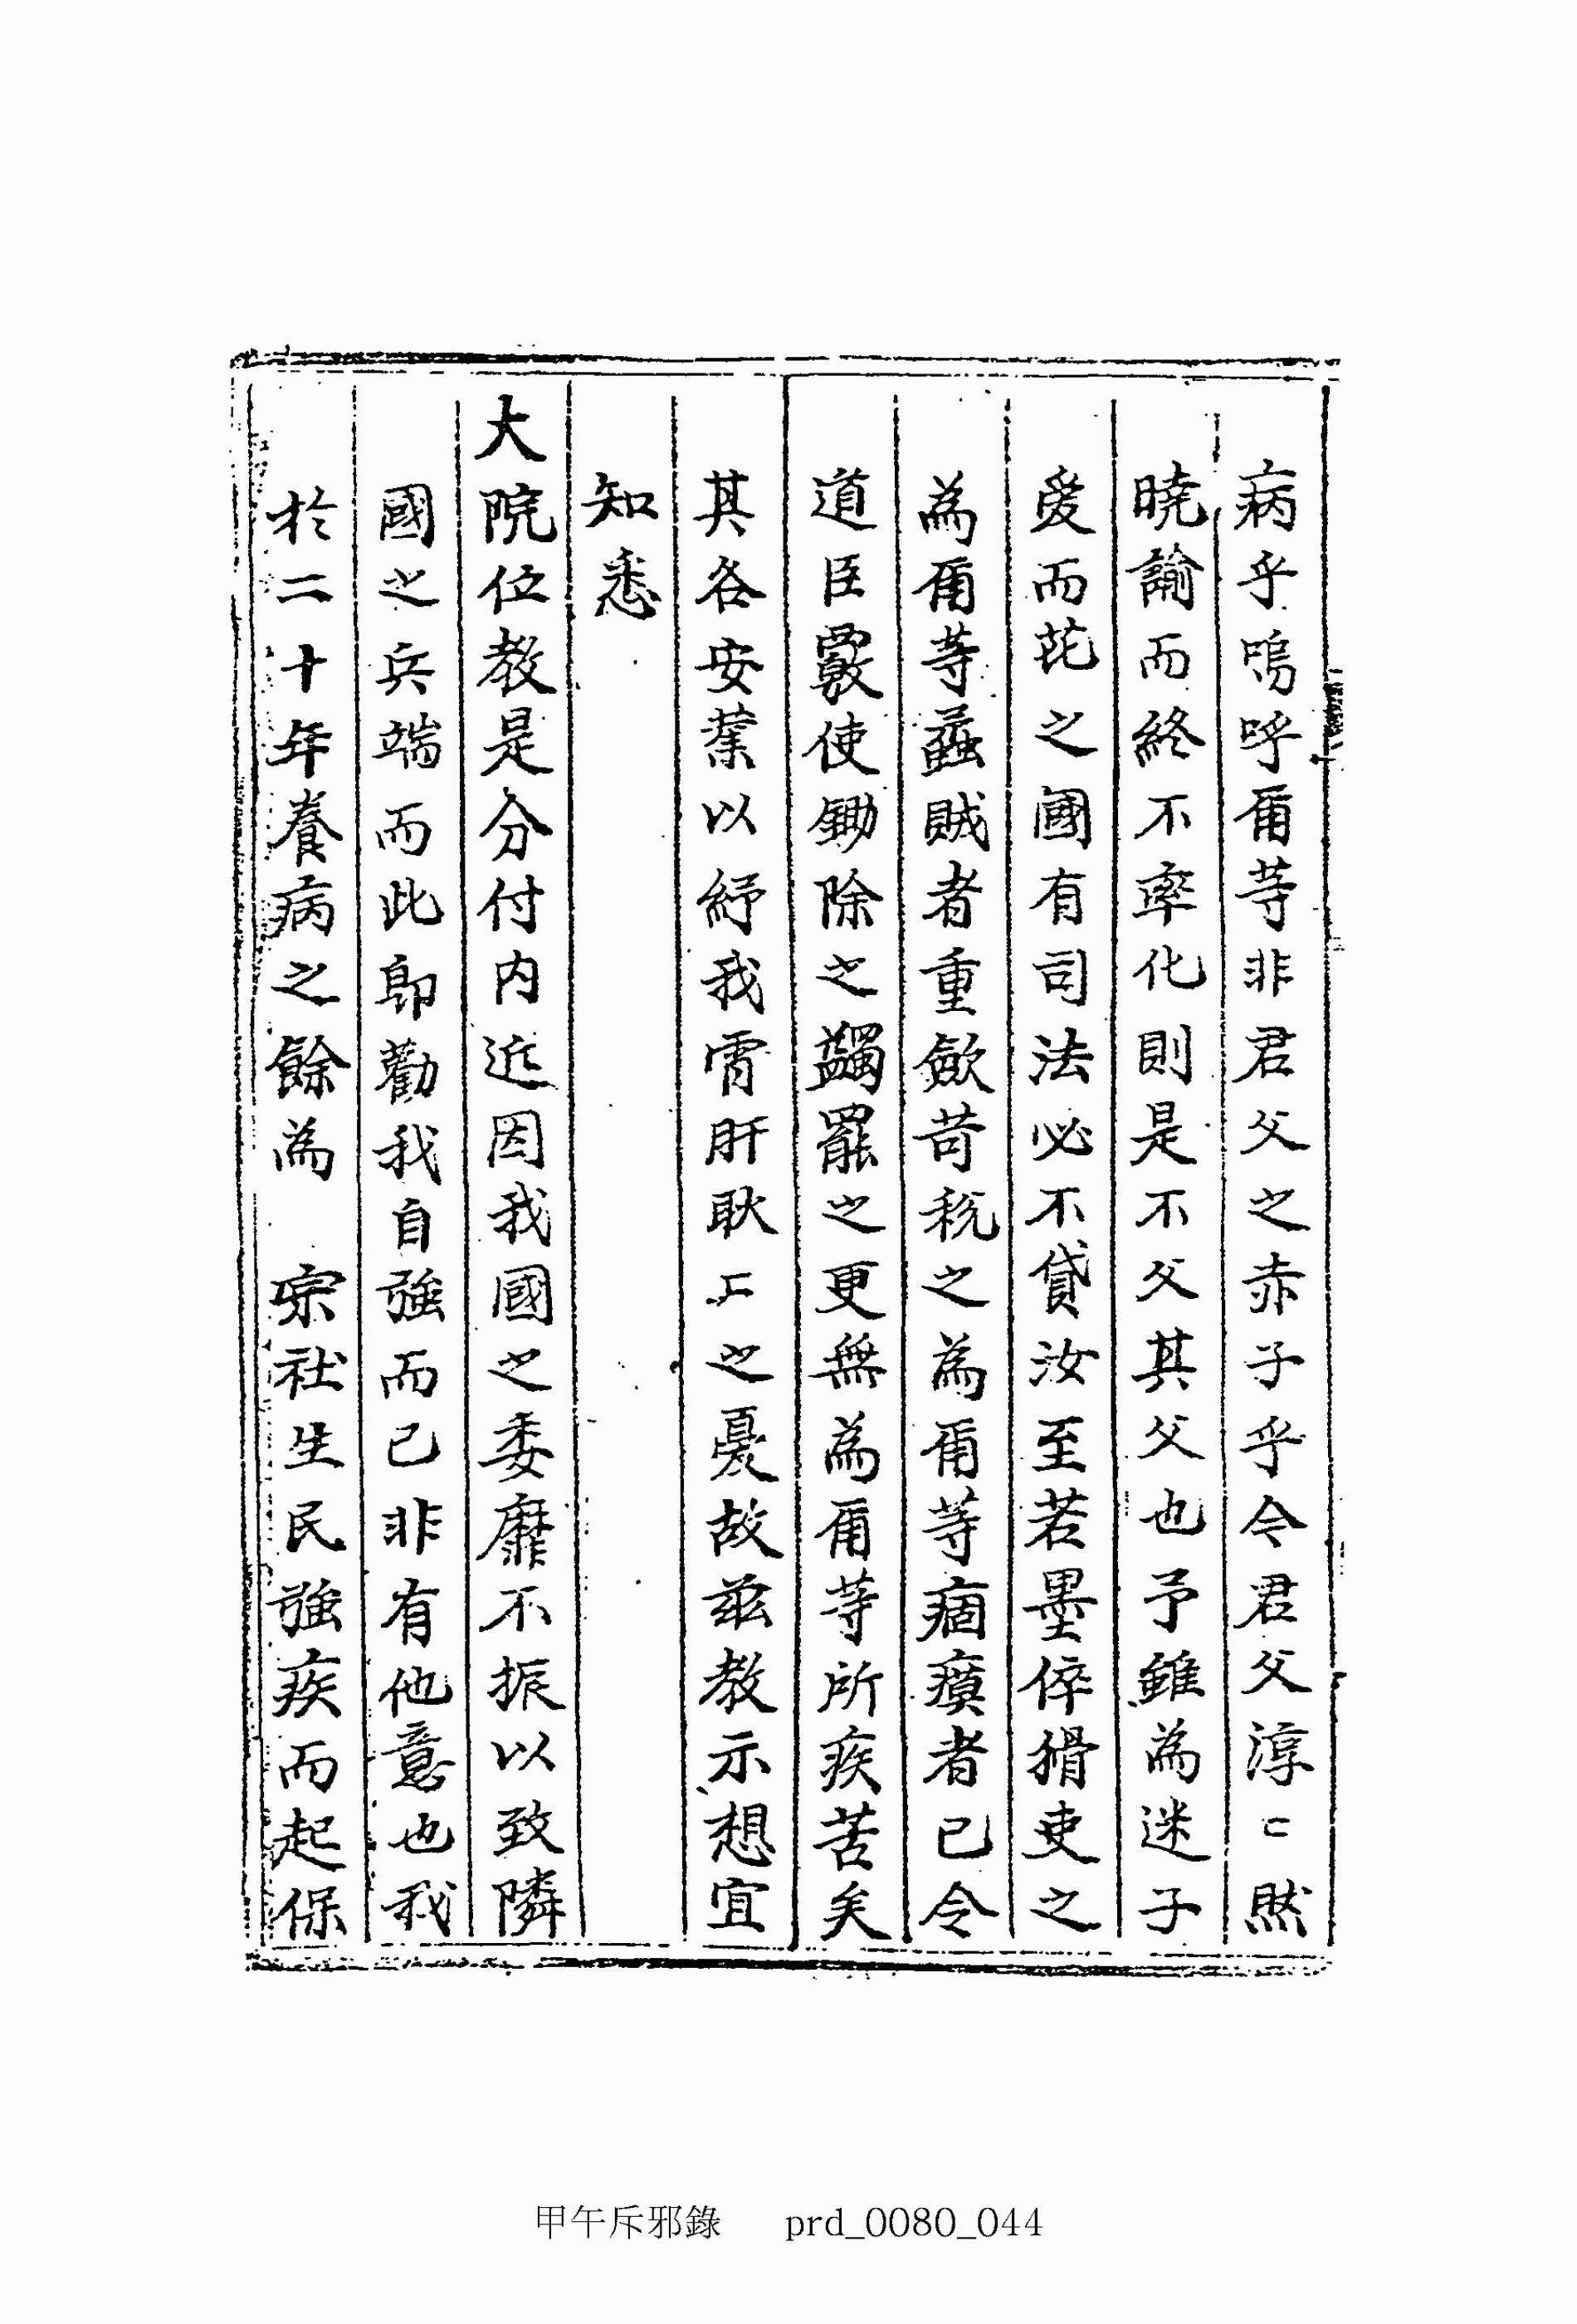 病乎嗚呼爾等非君父之赤子乎今君父淳〻然
曉諭而終不率化則是不父其父也予雖為迷子
愛而芘之國有司法必不貸汝至若墨倅猾吏之
為爾等蟊賊者重斂苛稅之為爾等痼瘼者已令
道臣覈使鋤除之蠲罷之更無為爾等所疾苦矣
其各安業以紓我宵肝耿〻之憂故玆教示想宜
知悉
大院位教是分付內近因我國之委靡不振以致隣
國之兵端而此卽勸我自强而已非有他意也我
於二十年養病之餘為 宗社生民强疾而起保
甲午斥邪錄 prd_0080_044